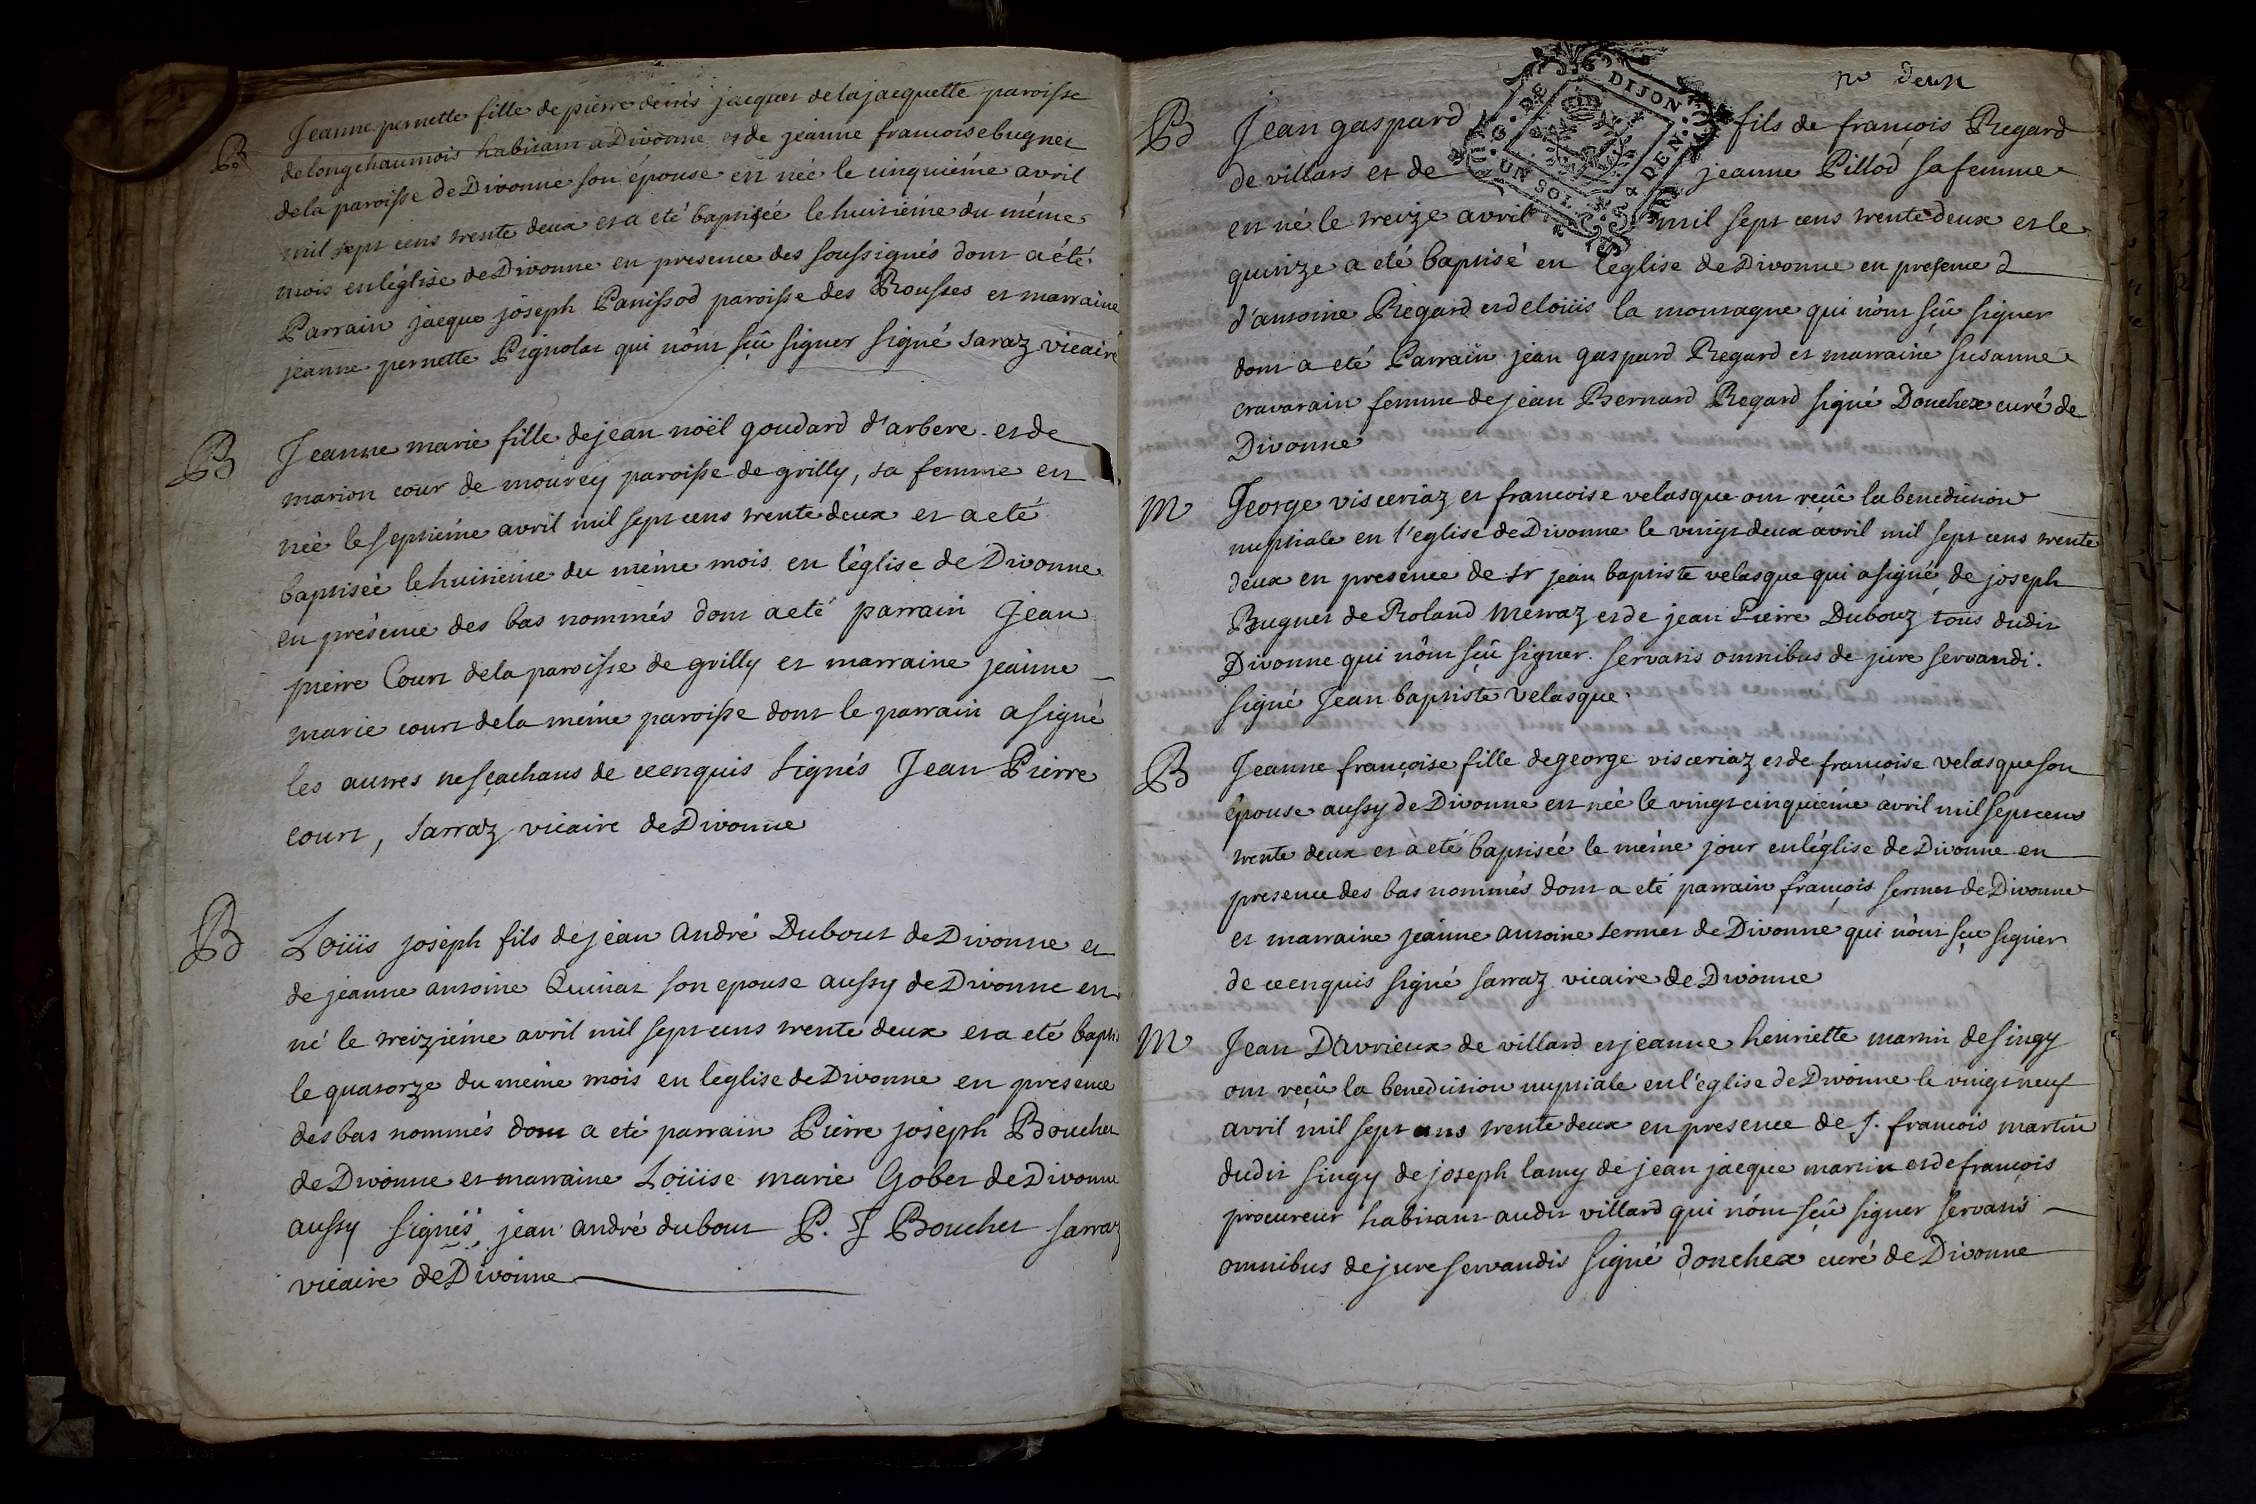 B
Jeanne pernette fille de pierre denis jacques de lajacquette paroisse
de longchaumois habitant a Divonne et de jeanne francoise bugnet
de la paroisse de Divonne son épouse est née le cinquiéme avril
mil sept cens trente deux et a eté baptisée le huitiéme du méme
mois en léglise de Divonne en presence des soussignés dont a été
Parrain jacque joseph Panissod paroisse des Rousses et marraine
jeanne pernette Pignolat qui nônt sçû signer signé saraz vicaire
B
Jeanne marie fille de jean noël goudard d'arbere et de
marion cour de mourey paroisse de grilly, sa femme est
née le septiéme avril mil sept cens trente deux et a eté
baptisée le huitiéme du méme mois en léglise de Divonne
en présence des bas nommés dont a eté parrain Jean
pierre Court de la paroisse de grilly et marraine jeanne
marie court de la méme paroisse dont le parrain a signé
les autres ne sçachans de ce enquis signés Jean Pierre
court, sarraz vicaire de Divonne
B
Loüis joseph fils de jean andré Dubout de Divonne et
de jeanne antoine Quinat son epouse aussy de Divonne est
né le treiziéme avril mil sept cens trente deux et a eté bapti
le quatorze du méme mois en léglise de Divonne en presence
des bas nommés dont a eté parrain Pierre joseph Bouchet
de Divonne et marraine Loüise marie Gobet de Divonne
aussy signés jean andré dubout P. J Bouchet sarraz
vicaire de Divonne
no deux
G. DE DIJON
UN SOL 4 DEN.
B
Jean gaspard fils de françois Regard
de villars et de jeanne Pillod sa femme
est né le treize avril mil sept cens trente deux et le
quinze a eté baptisé en léglise de Divonne en presence d
d'antoine Regard et de loüis la montagne qui nônt sçû signer
dont a eté Parrain jean gaspard Regard et marraine susanne
cravarain femme de jean Bernard Regard signé Douchex curé de
Divonne
M
George visceriaz et francoise velasque ont reçû la benediction
nuptiale en l'eglise de Divonne le vingt deux avril mil sept cens trente
deux en presence de sr jean baptiste velasque qui a signé, de joseph
Bugnet de Roland métraz et de jean Pierre Dubouz tous dudit
Divonne qui nônt sçû signer. servatis omnibus de jure servandi.
signé Jean baptiste velasque.
B
Jeanne françoise fille de george visceriaz et de françoise velasque son
épouse aussy de Divonne est née le vingt cinquiéme avril mil sept cens
trente deux et à eté baptiséé le méme jour en léglise de Divonne en
presence des bas nommés dont a eté parrain françois sermet de Divonne
et marraine jeanne antoine sermet de Divonne qui nônt sçu signer
de ce enquis signé sarraz vicaire de Divonne
M
Jean Davrieux de villard et jeanne henriette martin de singy
ont reçû la benediction nuptiale en l'eglise de Divonne le vingt neuf
avril mil sept cens trente deux en presence de J. francois martin
dudit singy de joseph lamy de jean jacque martin et de françois
procureur habitant audit villard qui nônt sçû signer servatis
omnibus de jure servandis signé douchex curé de Divonne